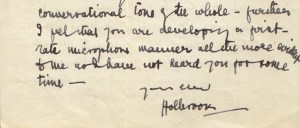 conversational tone of the whole – further
I felt that you are developing a first-
rate microphone manner all the more
to me as I have not heard you for some
time —
yours ever
Holbrook